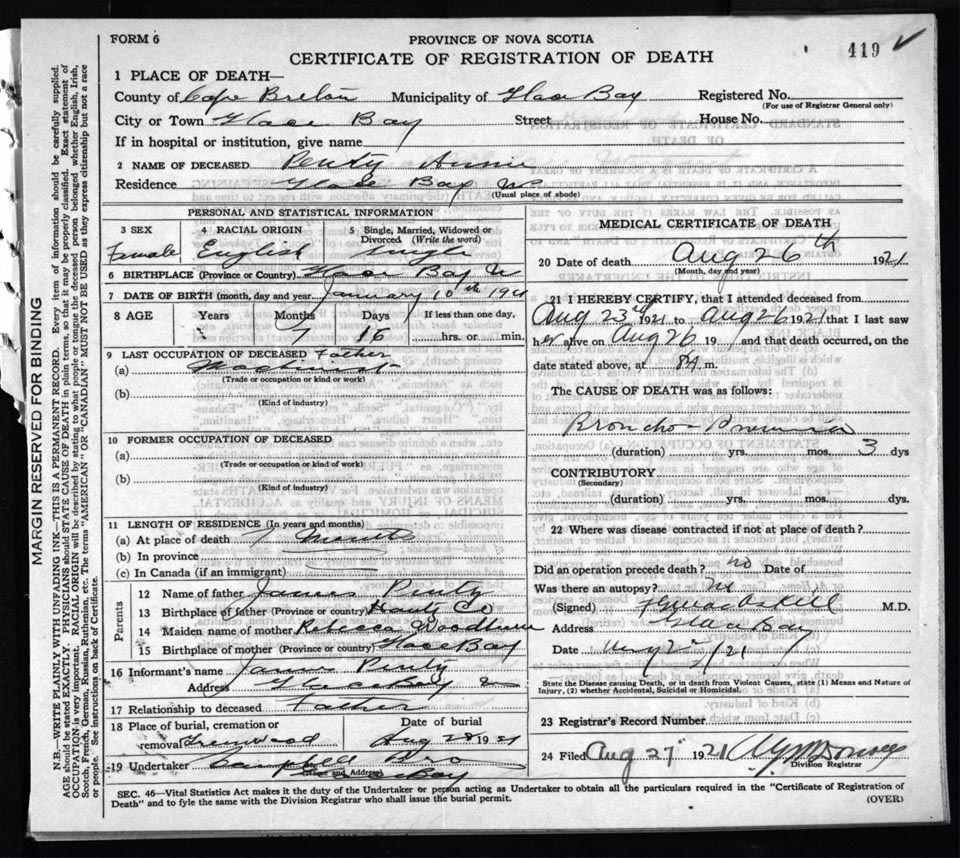 FORM 6
PROVINCE OF NOVA SCOTIA
419 ✓
CERTIFICATE OF REGISTRATION OF DEATH
1 PLACE OF DEATH—
County of Cape Breton Municipality of Glace Bay Registered No.
(For use of Registrar General only)
City or Town Glace Bay Street House No.
If in hospital or institution, give name
2 NAME OF DECEASED Penty Annie
Residence Glace Bay
(Usual place of abode)
PERSONAL AND STATISTICAL INFORMATION
3 SEX Female
4 RACIAL ORIGIN English
5 Single, Married, Widowed or Divorced (Write the word) Single
6 BIRTHPLACE (Province or Country) Glace Bay
7 DATE OF BIRTH (month, day and year) January 10th 1921
8 AGE Years Months Days If less than one day,
7 16 hrs. or min.
9 LAST OCCUPATION OF DECEASED Father
(a) Machinist
(Trade or occupation or kind or work)
(b)
(Kind of industry)
10 FORMER OCCUPATION OF DECEASED
(a)
(Trade or occupation or kind of work)
(b)
(Kind of industry)
11 LENGTH OF RESIDENCE (In years and months)
(a) At place of death 7 Months
(b) In province
(c) In Canada (if an immigrant)
Parents
12 Name of father James Penty
13 Birthplace of father (Province or country) Hants Co
14 Maiden name of mother Rebecca
15 Birthplace of mother (Province or country) Glace Bay
16 Informant's name James Penty
Address Glace Bay
17 Relationship to deceased Father
18 Place of burial, cremation or removal Greenwood
Date of burial Aug 28 1921
19 Undertaker Campbell Bro
(Name and Address) Bay
MEDICAL CERTIFICATE OF DEATH
20 Date of death Aug 26th 1921
(Month, day and year)
21 I HEREBY CERTIFY, that I attended deceased from
Aug 23rd 1921 to Aug 26 1921 that I last saw
her alive on Aug 26 19 and that death occurred, on the
date stated above, at m.
The CAUSE OF DEATH was as follows:
Broncho-Pneumonia
(duration) yrs. mos. 3 dys
CONTRIBUTORY
(Secondary)
(duration) yrs. mos. dys.
22 Where was disease contracted if not at place of death?
Did an operation precede death? no Date of
Was there an autopsy? no
(Signed) M.D.
Address Glace Bay
Date /21
State the Disease causing Death, or in death from Violent Causes, state (1) Means and Nature of
Injury, (2) whether Accidental, Suicidal or Homicidal.
23 Registrar's Record Number
24 Filed Aug 27 1921
Division Registrar
SEC. 46—Vital Statistics Act makes it the duty of the Undertaker or person acting as Undertaker to obtain all the particulars required in the "Certificate of Registration of
Death" and to fyle the same with the Division Registrar who shall issue the burial permit.
(OVER)
MARGIN RESERVED FOR BINDING
N.B.—WRITE PLAINLY WITH UNFADING INK—THIS IS A PERMANENT RECORD. Every item of information should be carefully supplied.
AGE should be stated EXACTLY. PHYSICIANS should STATE CAUSE OF DEATH in plain terms, so that it may be properly classified. Exact statement of
OCCUPATION is very important. RACIAL ORIGIN will be described by stating to what people or tongue the deceased person belonged whether English, Irish,
Scotch, French, German, Russian, Ruthenian, etc. The terms "AMERICAN" OR "CANADIAN" MUST NOT BE USED as they express citizenship but not a race
or people. See instructions on back of Certificate.